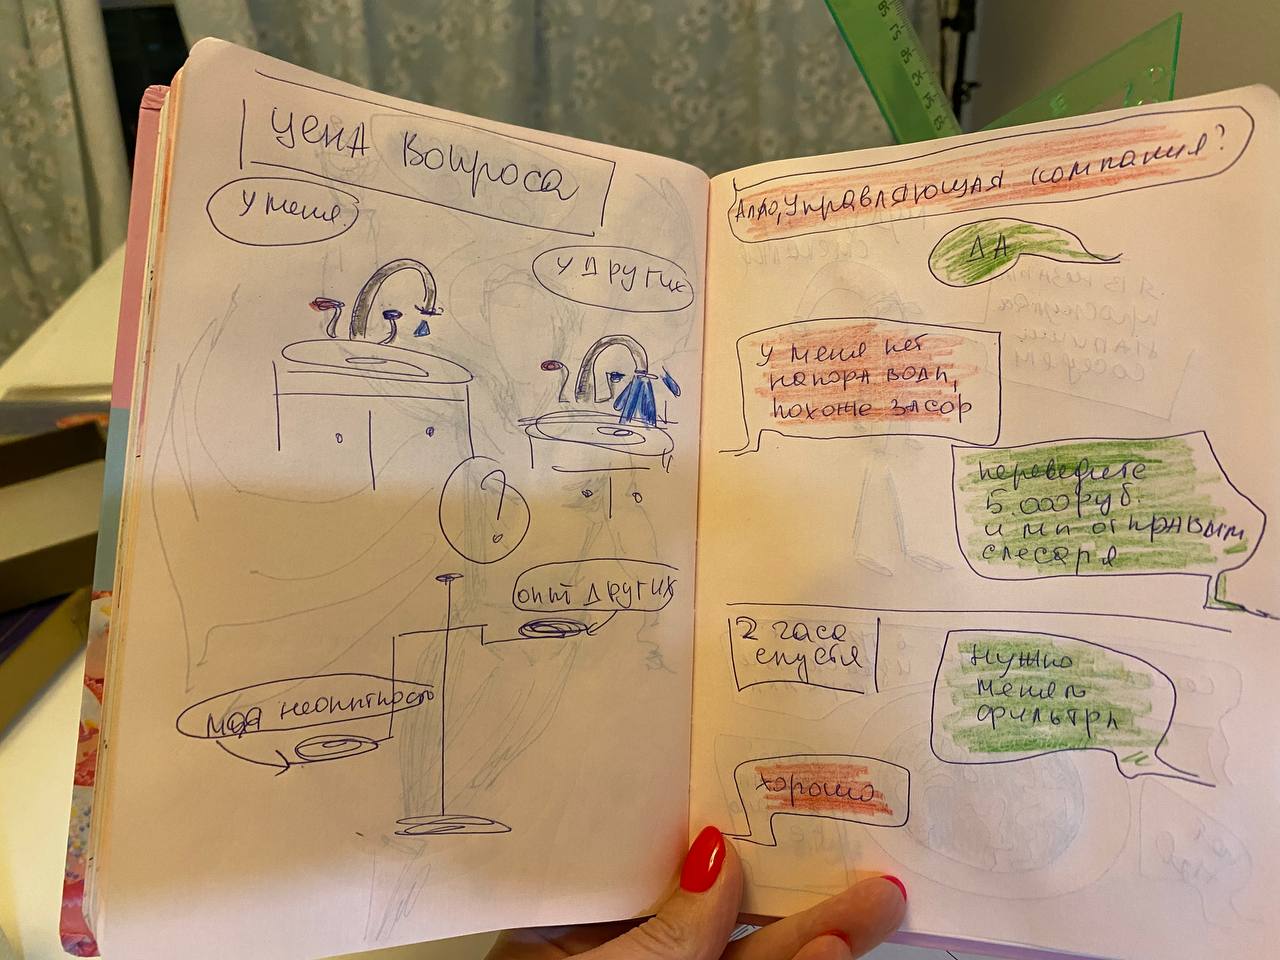 цена вопроса
у меня
у других
?
опыт других
моя неопытность
Алло, управляющая компания?
ДА
у меня нет
напора воды,
похоже засор
переведите
5.000 руб.
и мы отправим
слесаря
2 часа
спустя
нужно
менять
фильтры
хорошо